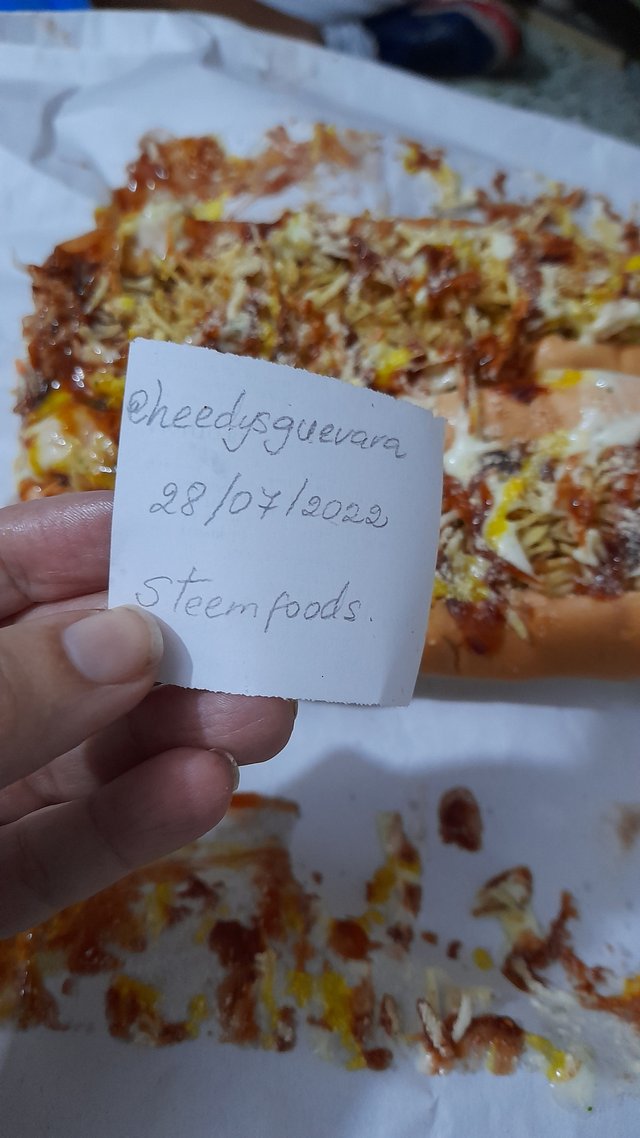 @heedysguevara
28/07/2022
Steemfoods.